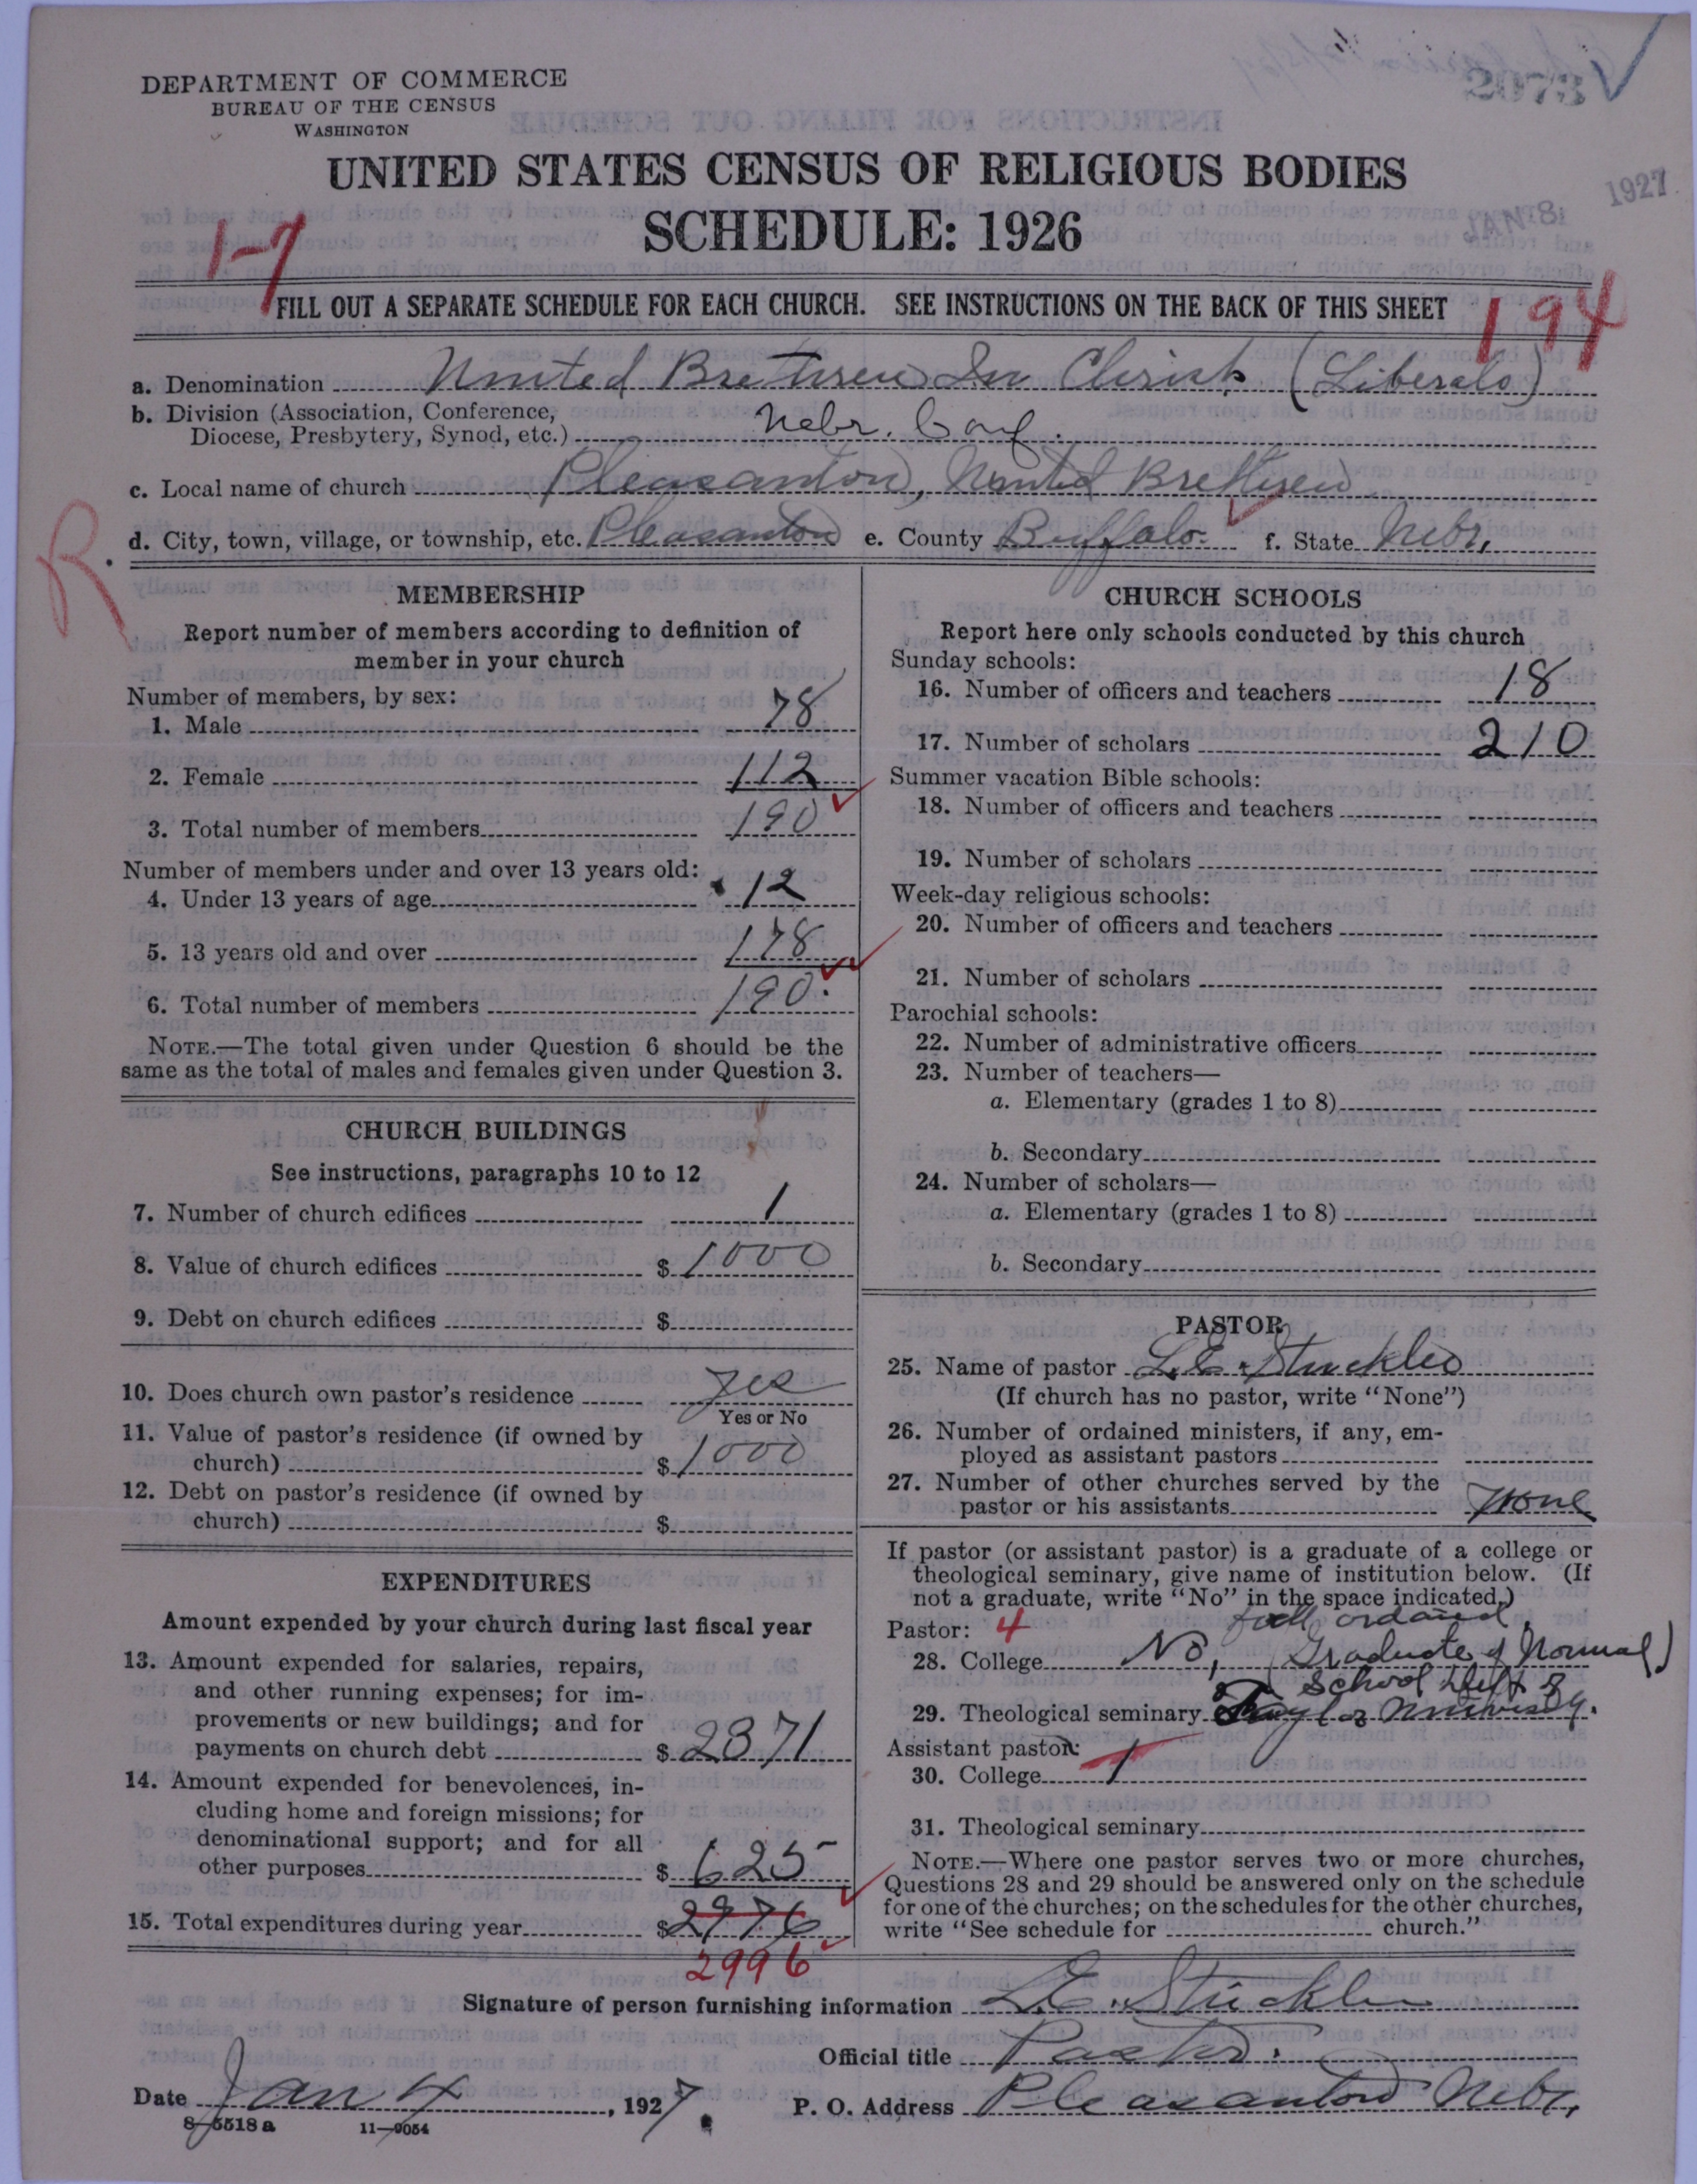 DEPARTMENT OF COMMERCE
BUREAU OF THE CENSUS
WASHINGTON
2073
UNITED STATES CENSUS OF RELIGIOUS BODIES
SCHEDULE: 1926
JAN 8 1927
1-7
FILL OUT A SEPARATE SCHEDULE FOR EACH CHURCH. SEE INSTRUCTIONS ON THE BACK OF THIS SHEET
194
a. Denomination United Brethren In Christ (Liberals)
b. Division (Association, Conference,
Diocese, Presbytery, Synod, etc.) Nebr. Conf.
c. Local name of church Pleasanton, United Brethren
d. City, town, village, or township, etc. Pleasanton e. County Buffalo. f. State Nebr,
R
MEMBERSHIP
Report number of members according to definition of
member in your church
Number of members, by sex:
1. Male 78
2. Female 112
3. Total number of members 190
Number of members under and over 13 years old:
4. Under 13 years of age 12
5. 13 years old and over 178
6. Total number of members 190.
NOTE.—The total given under Question 6 should be the
same as the total of males and females given under Question 3.
CHURCH BUILDINGS
See instructions, paragraphs 10 to 12
7. Number of church edifices 1
8. Value of church edifices $ 1000
9. Debt on church edifices $
10. Does church own pastor's residence yes
Yes or No
11. Value of pastor's residence (if owned by
church) $ 1000
12. Debt on pastor's residence (if owned by
church) $
EXPENDITURES
Amount expended by your church during last fiscal year
13. Amount expended for salaries, repairs,
and other running expenses; for im-
provements or new buildings; and for
payments on church debt $ 2371
14. Amount expended for benevolences, in-
cluding home and foreign missions; for
denominational support; and for all
other purposes $ 625
15. Total expenditures during year $ 2976
2996
CHURCH SCHOOLS
Report here only schools conducted by this church
Sunday schools:
16. Number of officers and teachers 18
17. Number of scholars 210
Summer vacation Bible schools:
18. Number of officers and teachers
19. Number of scholars
Week-day religious schools:
20. Number of officers and teachers
21. Number of scholars
Parochial schools:
22. Number of administrative officers
23. Number of teachers—
a. Elementary (grades 1 to 8)
b. Secondary
24. Number of scholars—
a. Elementary (grades 1 to 8)
b. Secondary
PASTOR
25. Name of pastor L.E. Struckler
(If church has no pastor, write "None")
26. Number of ordained ministers, if any, em-
ployed as assistant pastors
27. Number of other churches served by the
pastor or his assistants None
If pastor (or assistant pastor) is a graduate of a college or
theological seminary, give name of institution below. (If
not a graduate, write "No" in the space indicated.)
Pastor: 4 ordained
28. College No, (Graduate of Normal)
School Dept of
29. Theological seminary Taylor University.
Assistant pastor:
30. College
31. Theological seminary
NOTE.—Where one pastor serves two or more churches,
Questions 28 and 29 should be answered only on the schedule
for one of the churches; on the schedules for the other churches,
write "See schedule for church."
Signature of person furnishing information L.E. Struckler
Official title Pastor.
Date Jan 4, 1927. P. O. Address Pleasanton Nebr,
8-5518 a 11-9054